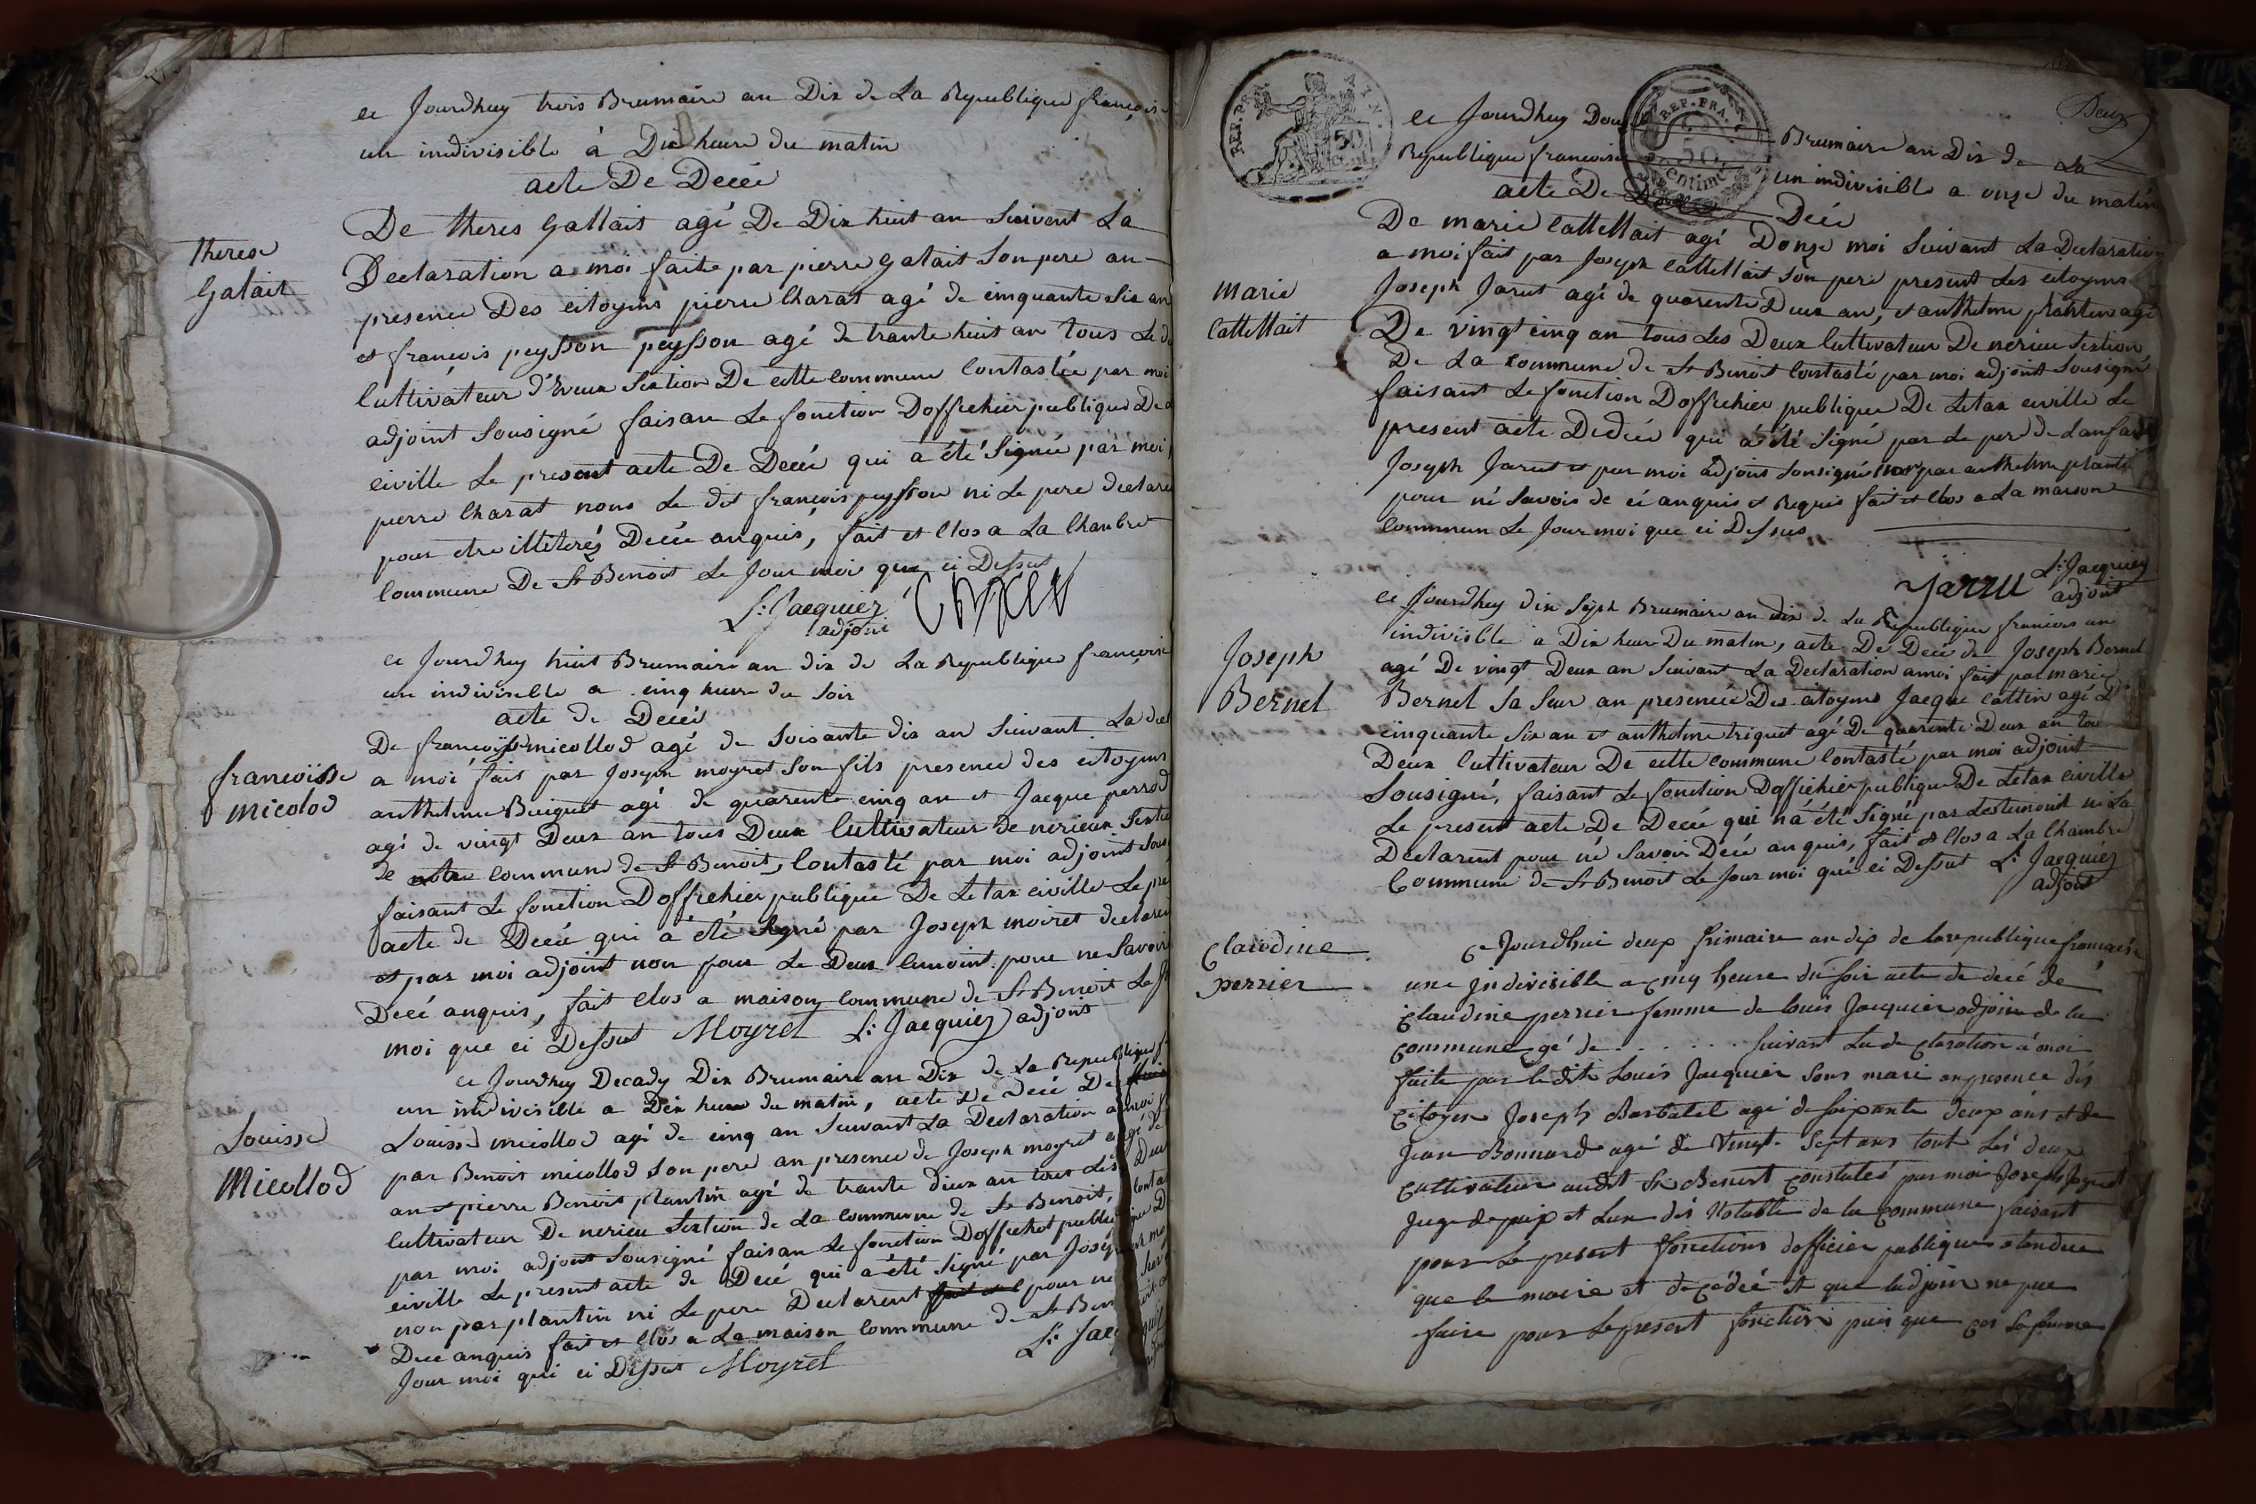 ce Jourdhuy trois Brumaire an Dix de La Republique françoise
un indivisible à Dix heure du matin
acte De Decée
De theres Gallait agé De Dix huit an Suivent La
therese
Galait
Declaration a moi faite par pierre Galait Son pere an
presence Des citoyens pierre Charat agé de cinquante Six an
et françois peysson peysson agé de trante huit an tous Le d
Cultivateur d'Evieux Section De cette commune Contastée par moi
adjoint Sousigné faisan Le fonction Doffichier publique De
civille Le present acte De Decée qui a été Signée par moi
pierre Charat nons Le dit françois peysson ni Le pere declare
pour etre illiterés Decée anquis, fait et Clos a La Chambre
Commune De St Benoit Le Jour moi que ci Dessus
Ls Jacquiez
adjoint
ce Jourdhuy huit Brumaire an dix de La Republique françoise
un indivisible a cinq heure du Soir
acte de Decée
De françoise micollod agé de Soisante dix an Suivant La dec
françoisse
micolod
a moi fait par Joseph moyret Son fils presence des citoyens
anthelme Buiguet agé de quarente cinq an et Jacque perrod
agé de vingt Deux an tous Deux Cultivateur de nerieux Sextion
de commune de St Benoit, Contasté par moi adjoint Sous
faisant Le fonction Doffichier publique De Letax civille Le pre
acte de Decée qui a été Signé par Joseph moiret declaren
et par moi adjoint non pour Le Deux temoint pour ne Savoir
Decé anquis, fait clos a maison Commune de St Benoit Le Jo
moi que ci Dessut Moyret Ls Jacquiez adjoint
ce Jourdhuy Decady Dix Brumaire an Dix de La Republique f
un indivisible a Dix heure du matin, acte De Decé De
Louisse micollod agé de cinq an Suivant La Declaration a moi f
Louisse
Micollod
par Benoit micollod Son pere an presence de Joseph moyret agé de
an et pierre Benoit plantin agé de trante dieux an tous Les Deux
Cultivateur De nerieu Sextion de La Commune de St Benoit, Conta
par moi adjoint Sousigné faisan Le fonction Doffichet publique D
civille Le present acte de Decé qui a été Signé par Joseph mo
non par plantin ni Le pere Declarent pour ne
Decé anquis fait et Clos a La maison Commune de St Ben
Jour moi qui ci Dessut Moyret Ls Jac
REP. FRA.
50
REP. FRA.
50
Centimes
Deux
ce Jourdhuy Dou Brumaire an Dix de La
Republique françoise un indivisible a onze du matin
acte De Decée
De marie Cattellait agé Donze moi Suivant La Declaration
a moi fait par Joseph Cattellait Son pere present Les citoyens
marie
Cattellait
Joseph Jarut agé de quarente Deux an, et anthelme plantin agé
De vingt cinq an tous Les Deux Cultivateur De nerieu Sextion
De La commune de St Benoit Contasté par moi adjoint Sousigné
faisant Le fonction Doffichier publique De Letax civille Le
present acte Dedecée qui a été Signé par Le pere de Lanfant
Joseph Jarut et par moi adjoint Sousigné non par anthelme plantin
pour né Savoir de ci anquis et Requis fait et Clos a La maison
Commune Le Jour moi que ci Dessus
Jarru Ls Jacquiez
adjoint
ce Jourdhuy dix Sept Brumaire an dix de La Republique francois un
indivisible a Dix heur Du matin, acte De Decé de Joseph Bernel
Joseph
Bernel
agé De vingt Deux an Suivant La Declaration amoi fait par marie
Bernel Sa Seur an presencée Des citoyens Jacque Cattin agé De
cinquante Six an et anthelme triquet agé De quarente Deux an tou
Deux Cultivateur De cette Commune Contasté par moi adjoint
Sousigné, faisant Le fonction Doffichier publique De Letax civille
Le present acte De Decée qui n'a été Signé par Lestemoint ni La
Declarent pour né Savoir Decé anquis, fait et Clos a La Chambre
Commune de St Benoit Le Jour moi qué ci Dessut Ls Jacquiez
adjoint
Claudine
perrier
Ce Jourdhui deux frimaire an dix de la republique française
une Jndivisible a cinq heure du soir acte de decé de
Claudine perrier femme de louis Jacquier adjoin de la
Commune agé de . . . . . . suivant La declaration a moi
faite par le dit Louis Jacquier sons mari en presence des
Citoyen Joseph Barbatel agé de soixante deux ans et de
Jean Bonnard agé de vingt Sept ans tout Les deux
Cultivateur audit St Benoit Constatés par moi Joseph
Juge de paix et Lun des Notable de la Commune faisant
pour Le present fonctions dofficier publique atendue
que le maire et decédée et que ladjoin ne peu
faire pour Le present fonction puis que ces sa femme